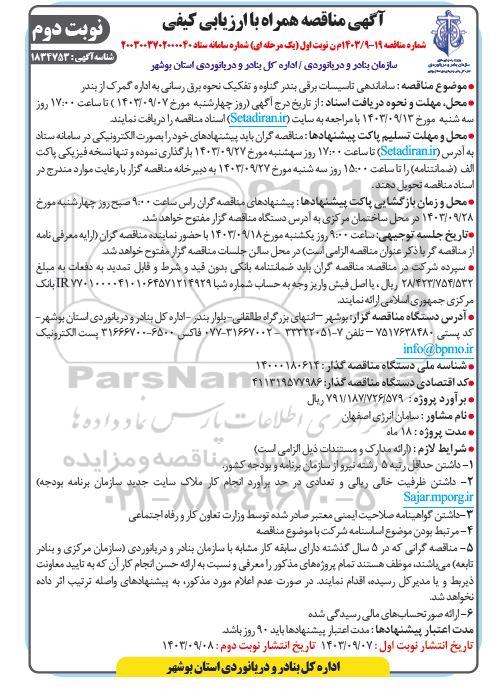 آگهی مناقصه همراه با ارزیابی کیفی
نوبت دوم
شماره مناقصه ۱۹-۱۴۰۳/۹م ن نوبت اول (یک مرحله ای) شماره سامانه ستاد ۲۰۰۳۰۰۳۷۰۲۰۰۰۰۴۰
شناسه آگهی: ۱۸۳۴۷۵۳
سازمان بنادر و دریانوردی / اداره کل بنادر و دریانوردی استان بوشهر
سازمان بنادر و دریانوردی
• موضوع مناقصه : ساماندهی تاسیسات برقی بندر گناوه و تفکیک نحوه برق رسانی به اداره گمرک از بندر
• محل، مهلت و نحوه دریافت اسناد : از تاریخ درج آگهی (روز چهارشنبه مورخ ۱۴۰۳/۰۹/۰۷ ) تا ساعت ۱۷:۰۰ روز
سه شنبه مورخ ۱۴۰۳/۰۹/۱۳ با مراجعه به سایت (Setadiran.ir) اسناد مناقصه را دریافت نمایند.
• محل و مهلت تسلیم پاکت پیشنهادها : مناقصه گران باید پیشنهادهای خود را بصورت الکترونیکی در سامانه ستاد
به آدرس (Setadiran.ir) تا ساعت ۱۷:۰۰ روز سه شنبه مورخ ۱۴۰۳/۰۹/۲۷ بارگذاری نموده و تنها نسخه فیزیکی پاکت
الف (ضمانتنامه) را تا ساعت ۱۵:۰۰ روز سه شنبه مورخ ۱۴۰۳/۰۹/۲۷ به دبیرخانه مناقصه گزار با رعایت موارد مندرج در
اسناد مناقصه تحویل دهند.
• محل و زمان بازگشایی پاکت پیشنهادها : پیشنهادهای مناقصه گران راس ساعت ۹:۰۰ صبح روز چهارشنبه مورخ
۱۴۰۳/۰۹/۲۸ در محل ساختمان مرکزی به آدرس دستگاه مناقصه گزار مفتوح خواهد شد.
• تاریخ جلسه توجیهی: ساعت ۹:۰۰ روز یکشنبه مورخ ۱۴۰۳/۰۹/۱۸ با حضور نماینده مناقصه گران (ارایه معرفی نامه
از مناقصه گر با ذکر عنوان مناقصه الزامی است) در محل سالن جلسات مناقصه گزار مفتوح خواهد شد.
• سپرده شرکت در مناقصه: مناقصه گران باید ضمانتنامه بانکی بدون قید و شرط و قابل تمدید به دفعات به مبلغ
۲۸/۴۲۳/۷۵۴/۵۳۲ ریال، یا اصل فیش واریز وجه به حساب شماره شبا IR۷۷۰۱۰۰۰۰۴۱۰۱۰۶۴۵۷۱۲۱۴۹۲۹ بانک
مرکزی جمهوری اسلامی ارائه نمایند.
• آدرس دستگاه مناقصه گزار: بوشهر – انتهای بزرگراه طالقانی- بلوار بندر - اداره کل بنادر و دریانوردی استان بوشهر-
کد پستی ۷۵۱۷۶۳۸۴۸۰ – تلفن ۷-۳۳۳۲۲۰۵۱ – ۳۱۶۶۷۰۰۲-۰۷۷ فاکس ۶۵۰۰-۳۱۶۶۶۷۰۰ پست الکترونیک
info@bpmo.ir
• شناسه ملی دستگاه مناقصه گذار : ۱۴۰۰۰۱۸۰۶۱۴
• کد اقتصادی دستگاه مناقصه گذار: ۴۱۱۳۱۹۵۷۷۹۸۶
• برآورد پروژه : ۷۹۱/۱۸۷/۷۲۶/۵۷۹ ریال
• نام مشاور : سامان انرژی اصفهان
• مدت پروژه : ۱۸ ماه
• شرایط لازم : (ارائه مدارک و مستندات ذیل الزامی است)
۱- داشتن حداقل رتبه ۵ رشته نیرو از سازمان برنامه و بودجه کشور.
۲- داشتن ظرفیت خالی ریالی و تعدادی در حد برآورد انجام کار ملاک سایت جدید سازمان برنامه بودجه)
Sajar.mporg.ir
۳-داشتن گواهینامه صلاحیت ایمنی معتبر صادر شده توسط وزارت تعاون کار و رفاه اجتماعی
۴- مرتبط بودن موضوع اساسنامه شرکت با موضوع مناقصه
۵- مناقصه گرانی که در ۵ سال گذشته دارای سابقه کار مشابه با سازمان بنادر و دریانوردی (سازمان مرکزی و بنادر
تابعه) می‌باشند، موظف هستند تمام پروژه‌های مذکور را معرفی و نسبت به ارائه حسن انجام کار آن که به تایید معاونت
ذیربط و یا مدیرکل رسیده، اقدام نمایند. در صورت عدم اعلام مورد مذکور، به پیشنهادهای واصله ترتیب اثر داده
نخواهد شد.
۶- ارائه صورتحساب‌های مالی رسیدگی شده
مدت اعتبار پیشنهادها : مدت اعتبار پیشنهادها باید ۹۰ روز باشد.
تاریخ انتشار نوبت اول : ۱۴۰۳/۰۹/۰۷ تاریخ انتشار نوبت دوم : ۱۴۰۳/۰۹/۰۸
اداره کل بنادر و دریانوردی استان بوشهر